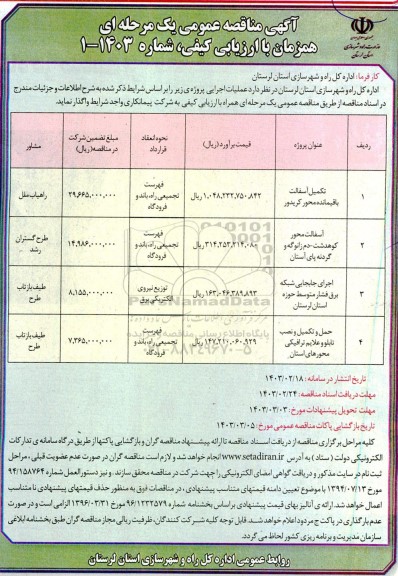 آگهی مناقصه عمومی یک مرحله ای
همزمان با ارزیابی کیفی، شماره ۱۴۰۳-۱
کارفرما: اداره کل راه و شهرسازی استان لرستان
اداره کل راه و شهرسازی استان لرستان در نظر دارد عملیات اجرایی پروژه ی زیر را بر اساس شرایط ذکر شده به شرح اطلاعات و جزئیات مندرج
در اسناد مناقصه از طریق مناقصه عمومی یک مرحله ای همراه با ارزیابی کیفی به شرکت پیمانکاری واجد شرایط واگذار نماید.
ردیف عنوان پروژه قیمت برآورد (ریال) نحوه انعقاد قرارداد مبلغ تضمین شرکت در مناقصه (ریال) مشاور
۱ تکمیل آسفالت باقیمانده محور کریدور ۱,۰۴۸,۲۳۲,۷۵۰,۸۴۲ ریال فهرست تجمیعی راه، باند و فرودگاه ۲۹,۶۶۵,۰۰۰,۰۰۰ راهیاب ملل
۲ آسفالت محور کوهدشت-دم زانوگه و گردنه پای آستان ۳۱۴,۲۵۳,۲۱۴,۰۸۰ ریال فهرست تجمیعی راه، باند و فرودگاه ۱۴,۹۸۶,۰۰۰,۰۰۰ طرح گستران رشد
۳ اجرای جابجایی شبکه برق فشار متوسط حوزه استان لرستان ۱۶۳,۰۴۶,۳۸۹,۸۹۳ ریال توزیع نیروی الکتریکی برق ۸,۱۵۵,۰۰۰,۰۰۰ طیف بازتاب طرح
۴ حمل و تکمیل و نصب تابلو و علایم ترافیکی محورهای استان ۱۴۷,۲۱۰,۰۶۰,۹۲۹ ریال فهرست تجمیعی راه، باند و فرودگاه ۷,۳۶۵,۰۰۰,۰۰۰ طیف بازتاب طرح
تاریخ انتشار در سامانه: ۱۴۰۳/۰۲/۱۸
مهلت دریافت اسناد مناقصه: ۱۴۰۳/۰۲/۲۴
مهلت تحویل پیشنهادات مورخ: ۱۴۰۳/۰۳/۰۳
تاریخ بازگشایی پاکات مناقصه عمومی مورخ: ۱۴۰۳/۰۳/۰۵
کلیه مراحل برگزاری مناقصه از دریافت اسناد مناقصه تا ارائه پیشنهاد مناقصه گران و بازگشایی پاکتها از طریق درگاه سامانه ی تدارکات
الکترونیکی دولت (ستاد) به آدرس www.setadiran.ir انجام خواهد شد و لازم است مناقصه گران در صورت عدم عضویت قبلی، مراحل
ثبت نام در سایت مذکور و دریافت گواهی امضای الکترونیکی را جهت شرکت در مناقصه محقق سازند. و نیز دستورالعمل شماره ۹۴/۱۵۸۷۶۴
مورخ ۱۳۹۴/۰۷/۱۳ با موضوع تعیین دامنه قیمتهای متناسب پیشنهادی، در مناقصات فوق به منظور حذف قیمتهای پیشنهادی نامتناسب
اعمال خواهد شد. ارائه ی آنالیز بهای قیمت پیشنهادی بر اساس بخشنامه شماره ۹۶/۱۲۳۲۵۷۹ مورخ ۱۳۹۶/۰۳/۳۱ الزامی است و در صورت
عدم بارگذاری در پاکت ج مردود اعلام خواهد شد. قابل توجه کلیه شرکت کنندگان، ظرفیت ریالی مجاز مناقصه گران طبق بخشنامه ابلاغی
سازمان مدیریت و برنامه ریزی کشور لحاظ می گردد.
روابط عمومی اداره کل راه و شهرسازی استان لرستان